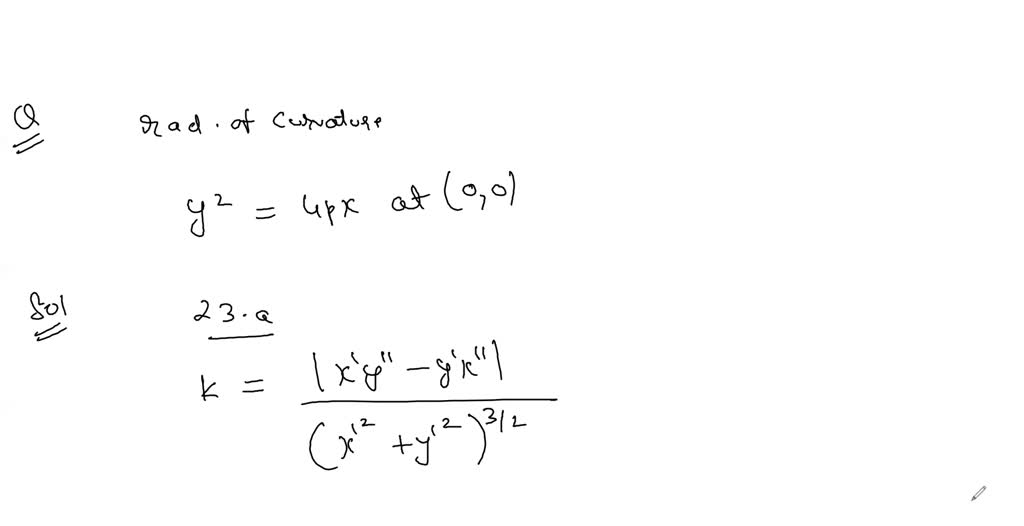 Q rad. of curvature
y² = 4px at (0,0)
Sol 23.a
k = |x'y" - y'x"| / (x'² + y'²)^3/2